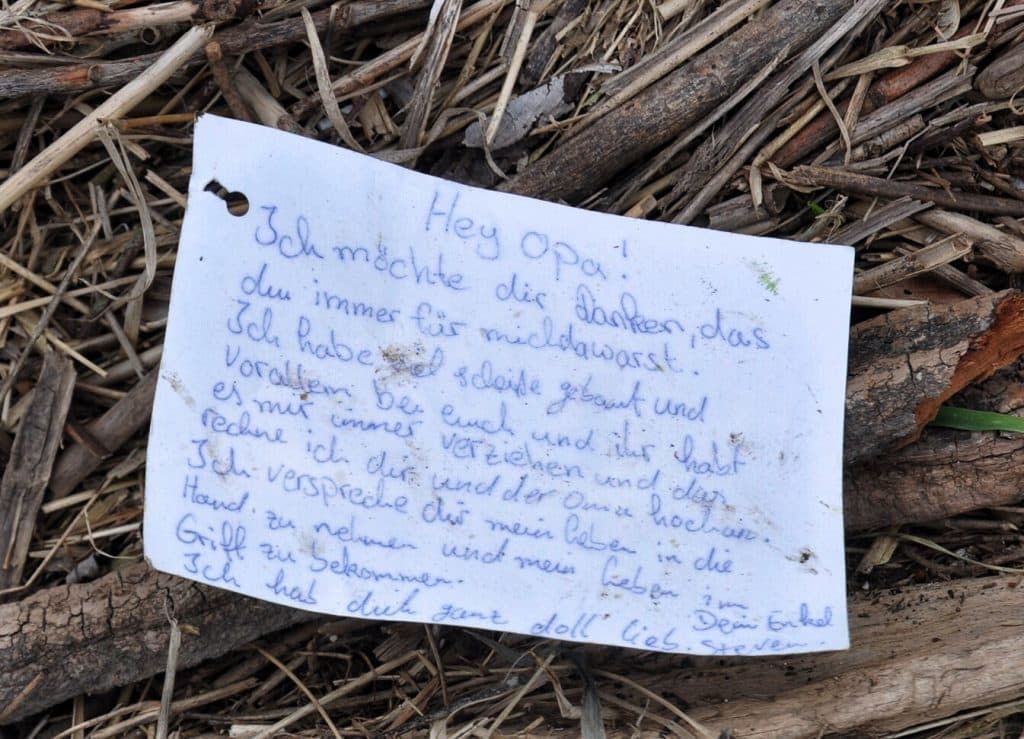 Hey Opa!
Ich möchte dir Danken, das
du immer für mich dawarst.
Ich habe viel scheiße gebaut und
vorallem bei euch und ihr habt
es mir immer verziehen und das
rechne ich dir und der Oma hoch an.
Ich verspreche dir mein Leben in die
Hand zu nehmen und mein Leben im
Griff zu bekommen.
Ich hab dich ganz doll lieb.
Dein Enkel
Steven.